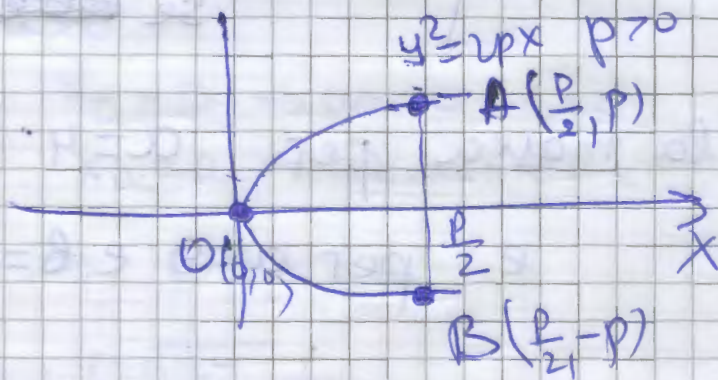 y²=2px p>0
A(p/2, p)
O(0,0)
p/2
X
B(p/2, -p)